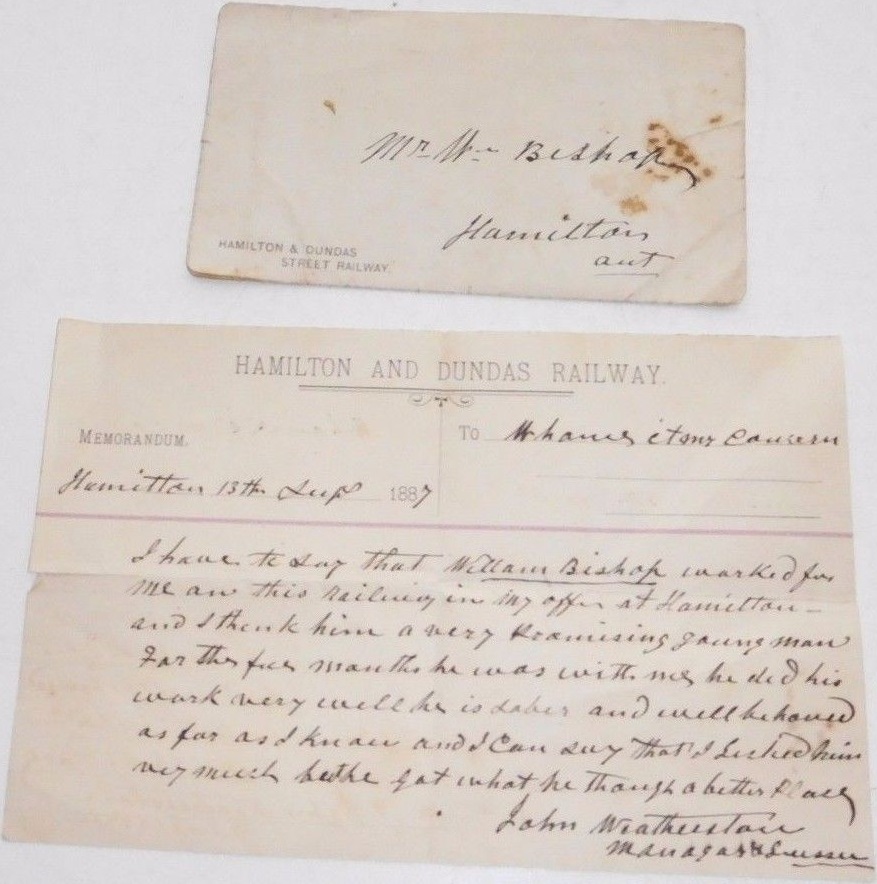 Mr Wm Bishop
Hamilton
ont
HAMILTON & DUNDAS
STREET RAILWAY.
HAMILTON AND DUNDAS RAILWAY.
MEMORANDUM.
To Whome it my Concern
Hamilton 13th Sept 1887
I have to say that William Bishop worked for
me on this Railway in my offes at Hamilton -
and I think him a very promising young man
For the few months he was with me he did his
work very well he is sober and well behaved
as far as I know and I Can say that I Licked him
very much but he got what he though a better Place
John Weatherston
Manager &